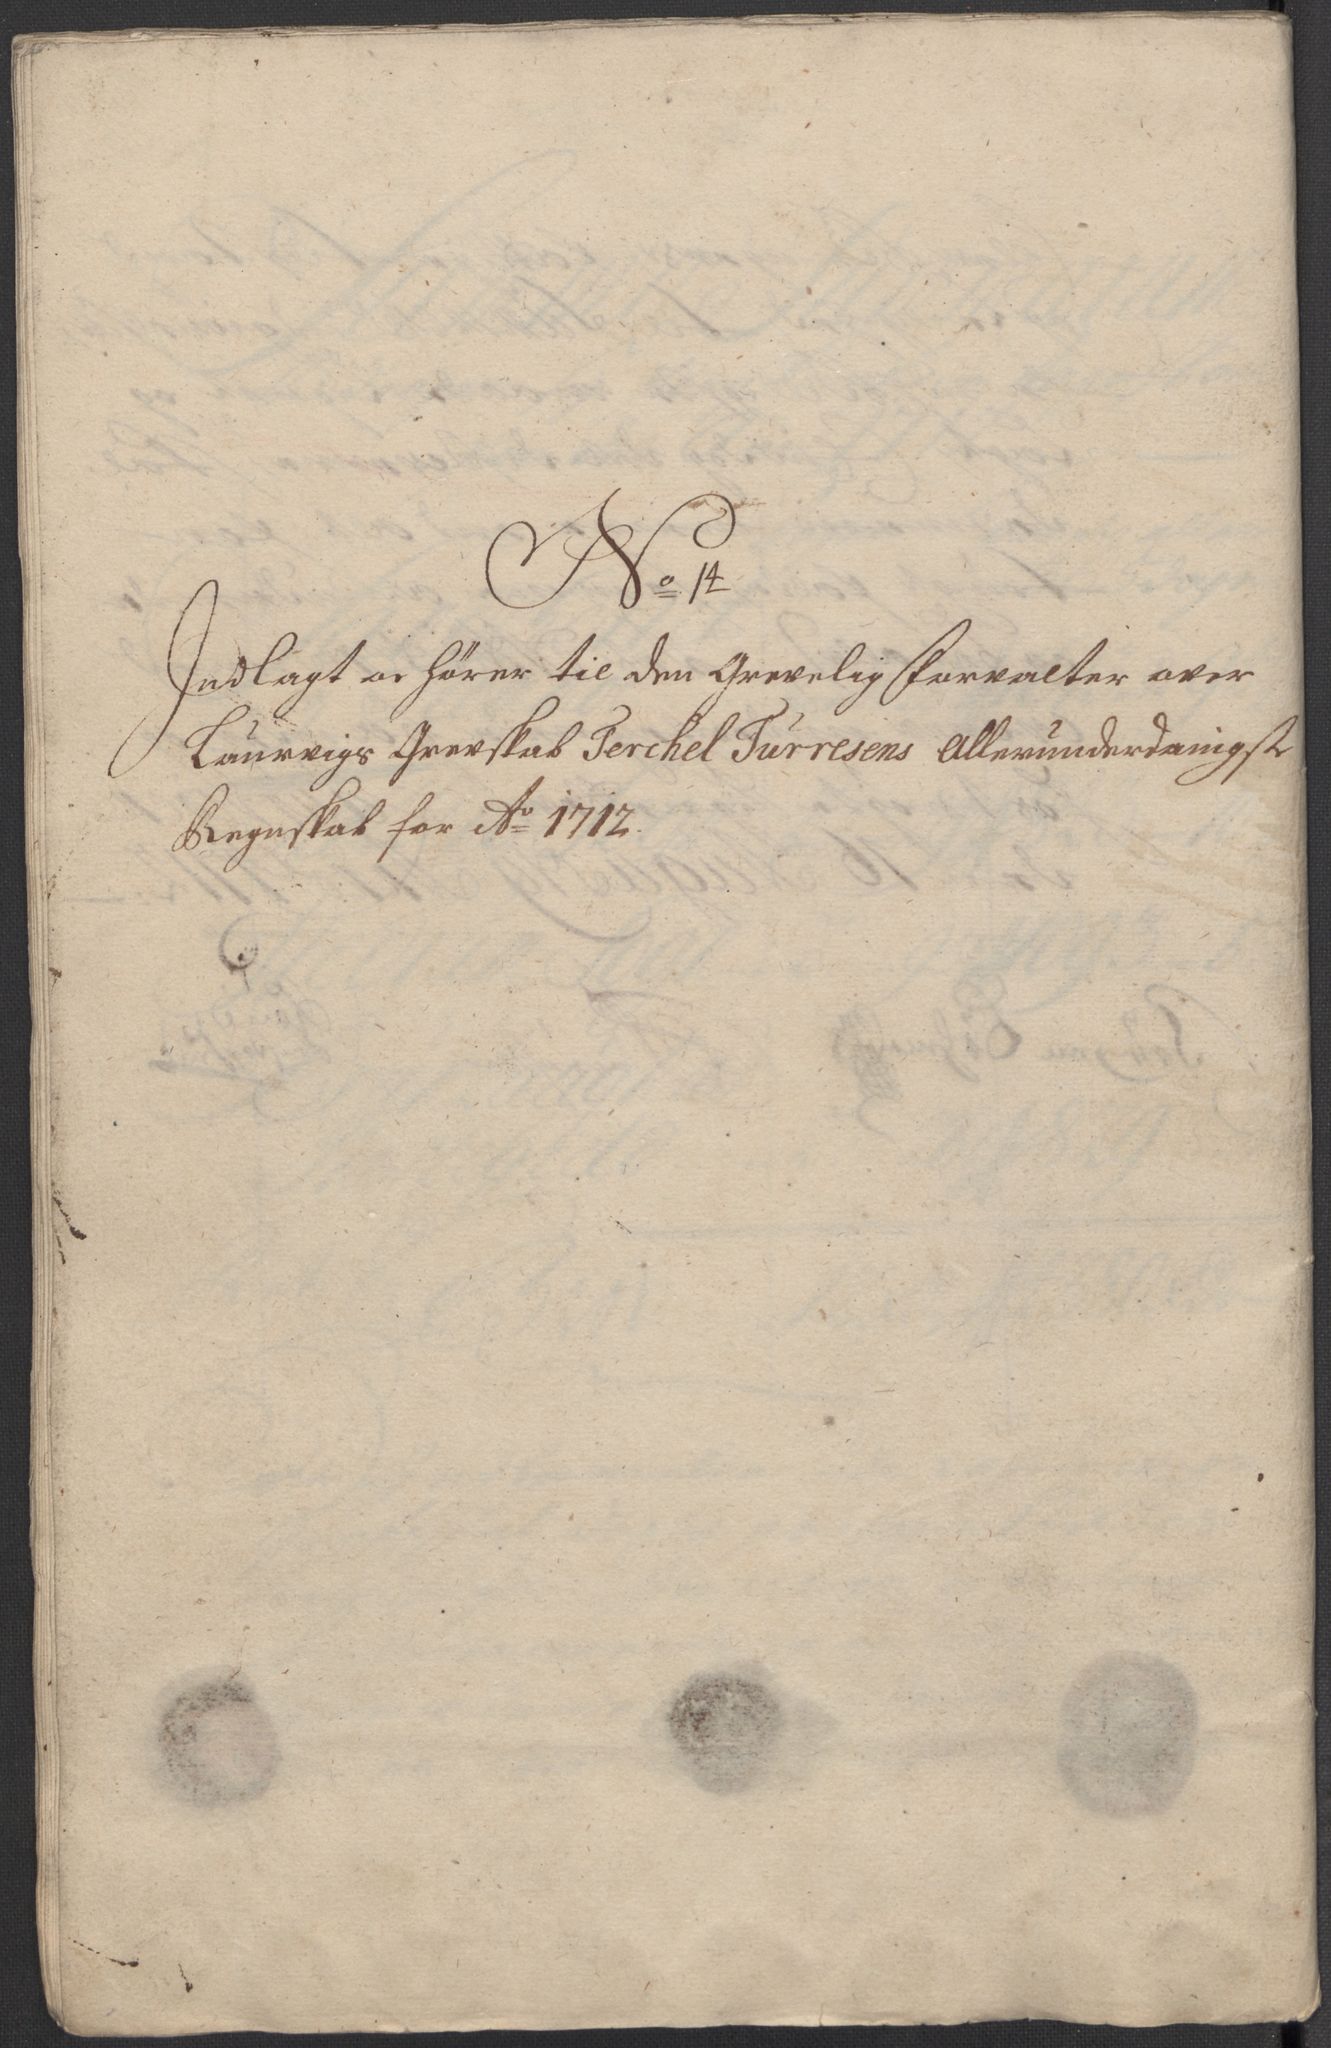 No 14
Indlagt oc hörer til den Grevelig Forvalter over
Laurvigs Grevskab Terchel Turresens Allerunderdanigst
Regnskab for Ao 1712.